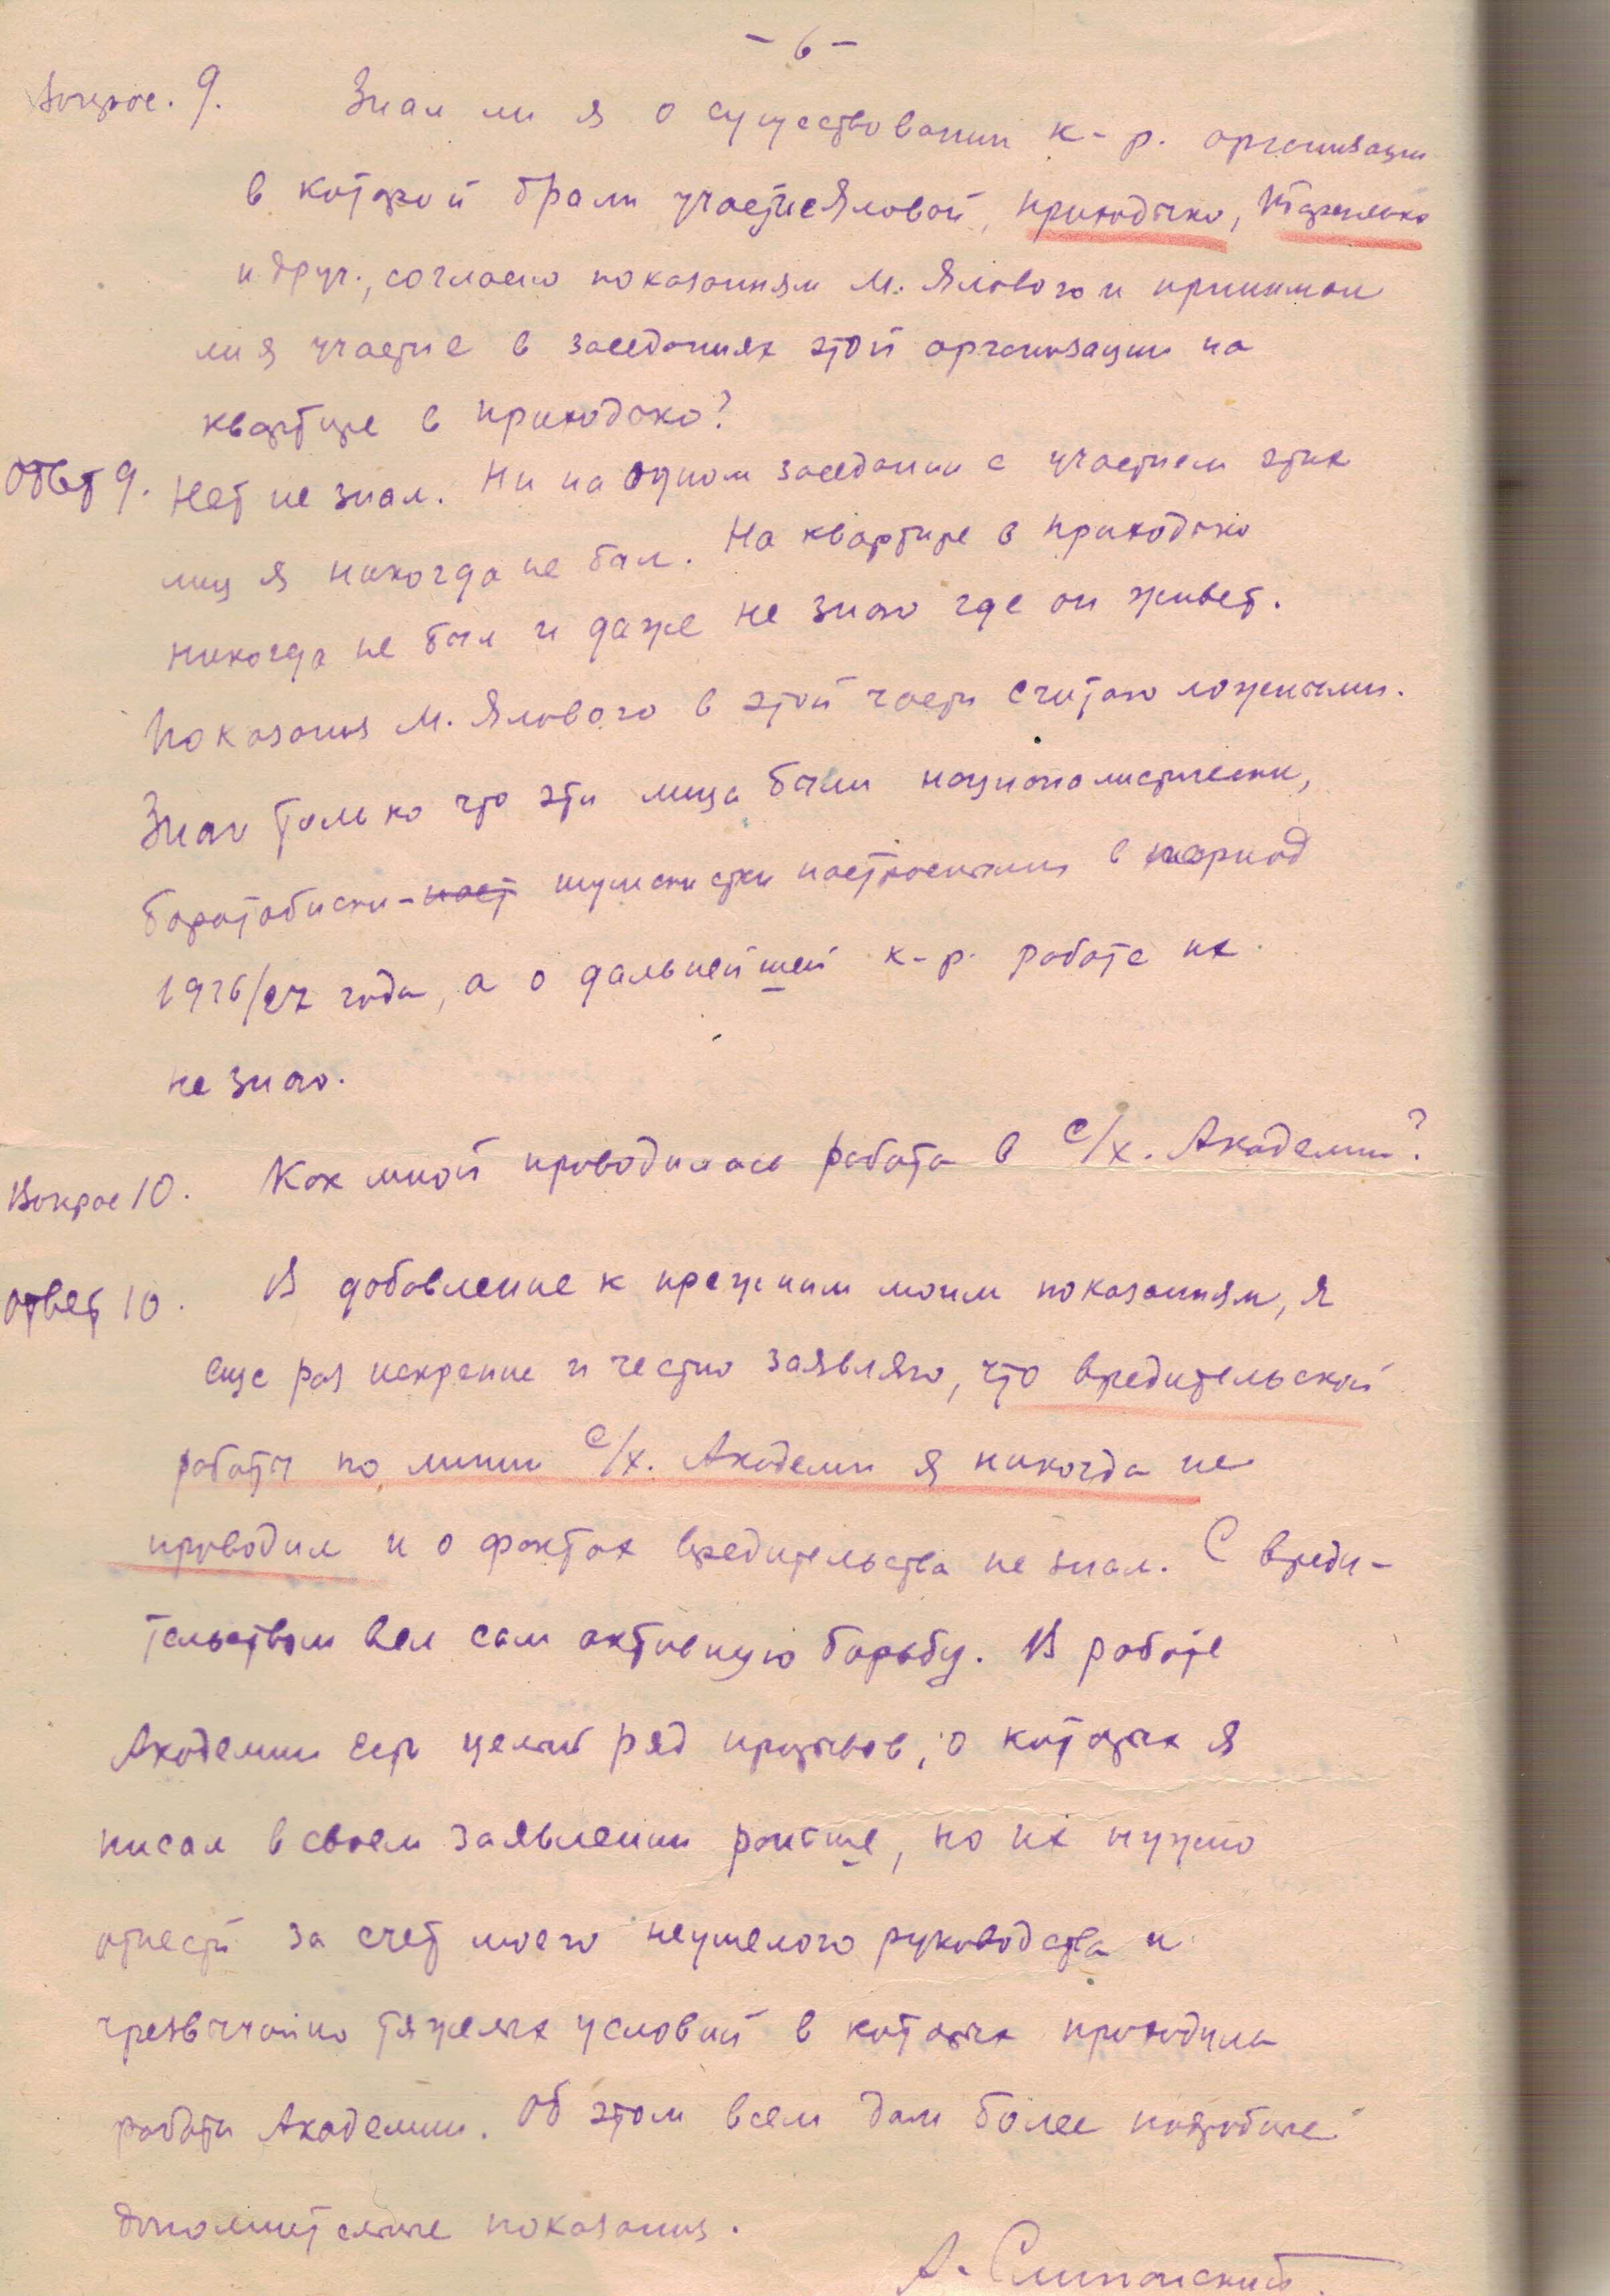 - 6 -
Вопрос. 9. Знал ли я о существовании к-р. организации
в которой брали участие Яловой, Приходько,
и друг., согласно показаниям М. Ялового и принимал
ли я участие в заседаниях этой организации на
квартире в Приходько?
Ответ 9. Нет не знал. Ни на одном заседании с участием этих
лиц я никогда не был. На квартире в Приходько
никогда не был и даже не знаю где он живет.
Показания М. Ялового в этой части считаю ложными.
Знаю только что эти лица были националистически,
боротьбистки- шумскистки настроенными в период
1926/27 года, а о дальнейшей к-р. работе их
не знаю.
Вопрос 10. Как мной проводилась работа в с/х. Академии?
Ответ 10. В добавление к прежним моим показаниям, я
еще раз искренне и честно заявляю, что вредительской
работы по линии с/х. Академии я никогда не
проводил и о фактах вредительства не знал. С вреди-
тельством вел сам активную борьбу. В работе
Академии есть целый ряд прорывов, о которых я
писал в своем заявлении раньше, но их нужно
отнести за счет моего неумелого руководства и
чрезвычайно тяжелых условий в которых проходила
работа Академии. Об этом всем дам более подробные
дополнительные показания.
А. Слипанский.